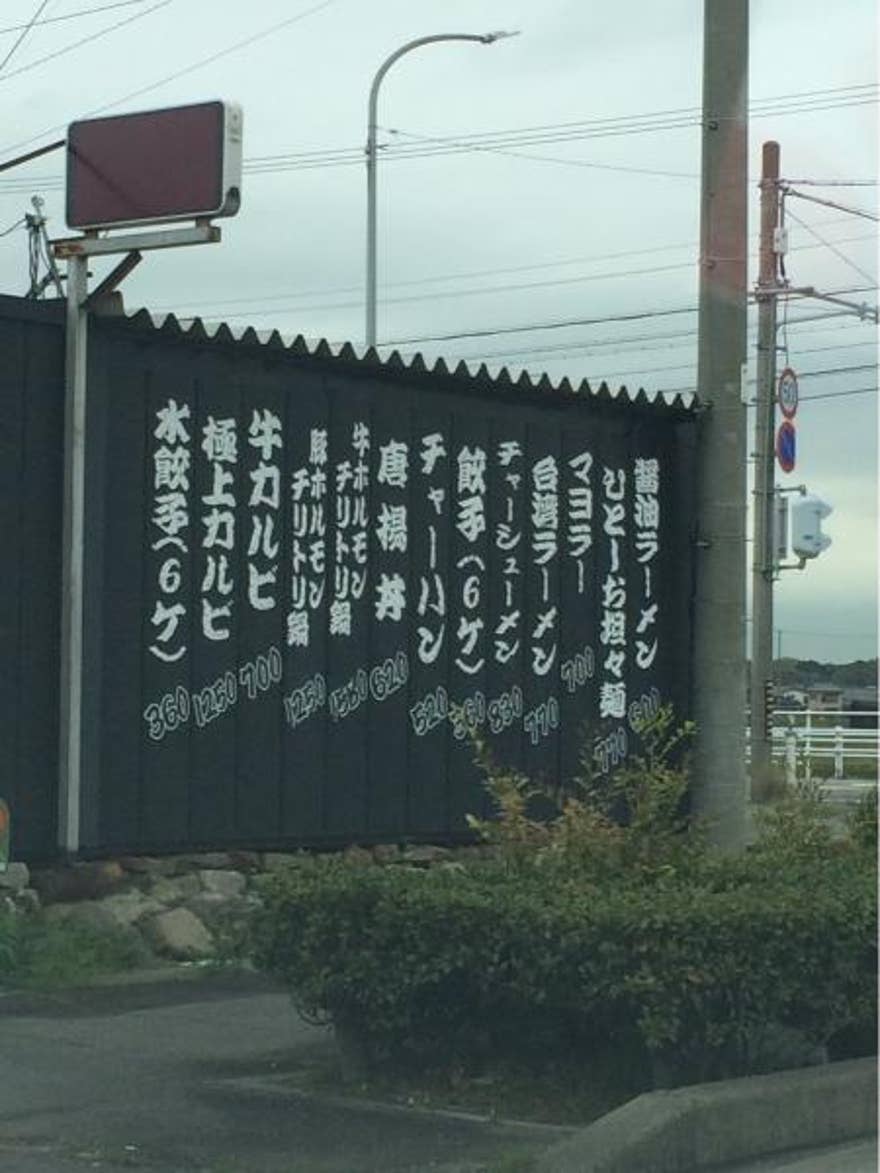 醤油ラーメン
ひとーお坦々麺 770
マヨラー 700
台湾ラーメン 770
チャーシューメン 830
餃子(6ケ) 360
チャーハン 520
唐揚丼 620
牛ホルモン
チリトリ鍋
豚ホルモン
チリトリ鍋 1250
牛カルビ 700
極上カルビ 1250
水餃子(6ケ) 360